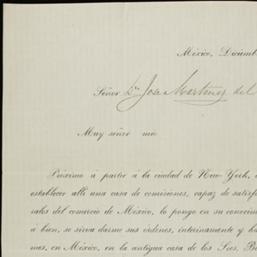 México, Diciemb
Señor Dn José Martínez del
Muy señor mio
Próximo a partir á la ciudad de New-York,
establecer allí una casa de comisiones, capaz de satisf
sales del comercio de México, lo pongo en su conocim
á bien, se sirva darme sus órdenes, interinamente y ha
mes, en México, en la antigua casa de los Sres. B